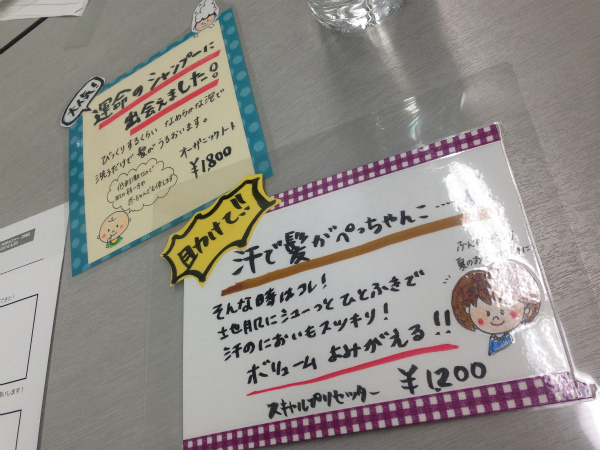 大人気!
運命のシャンプーに
出会えました!
びっくりするくらい なめらかな泡で
洗うだけで 髪が うるおいます。
オーガニックトト
¥1,800
目わけて!!
汗で髪がぺっちゃんこ……
そんな時はコレ!
地肌にシューっと ひとふきで
汗のにおいもスッキリ!
ボリューム よみがえる!!
スキャルプリセッター ¥1,200